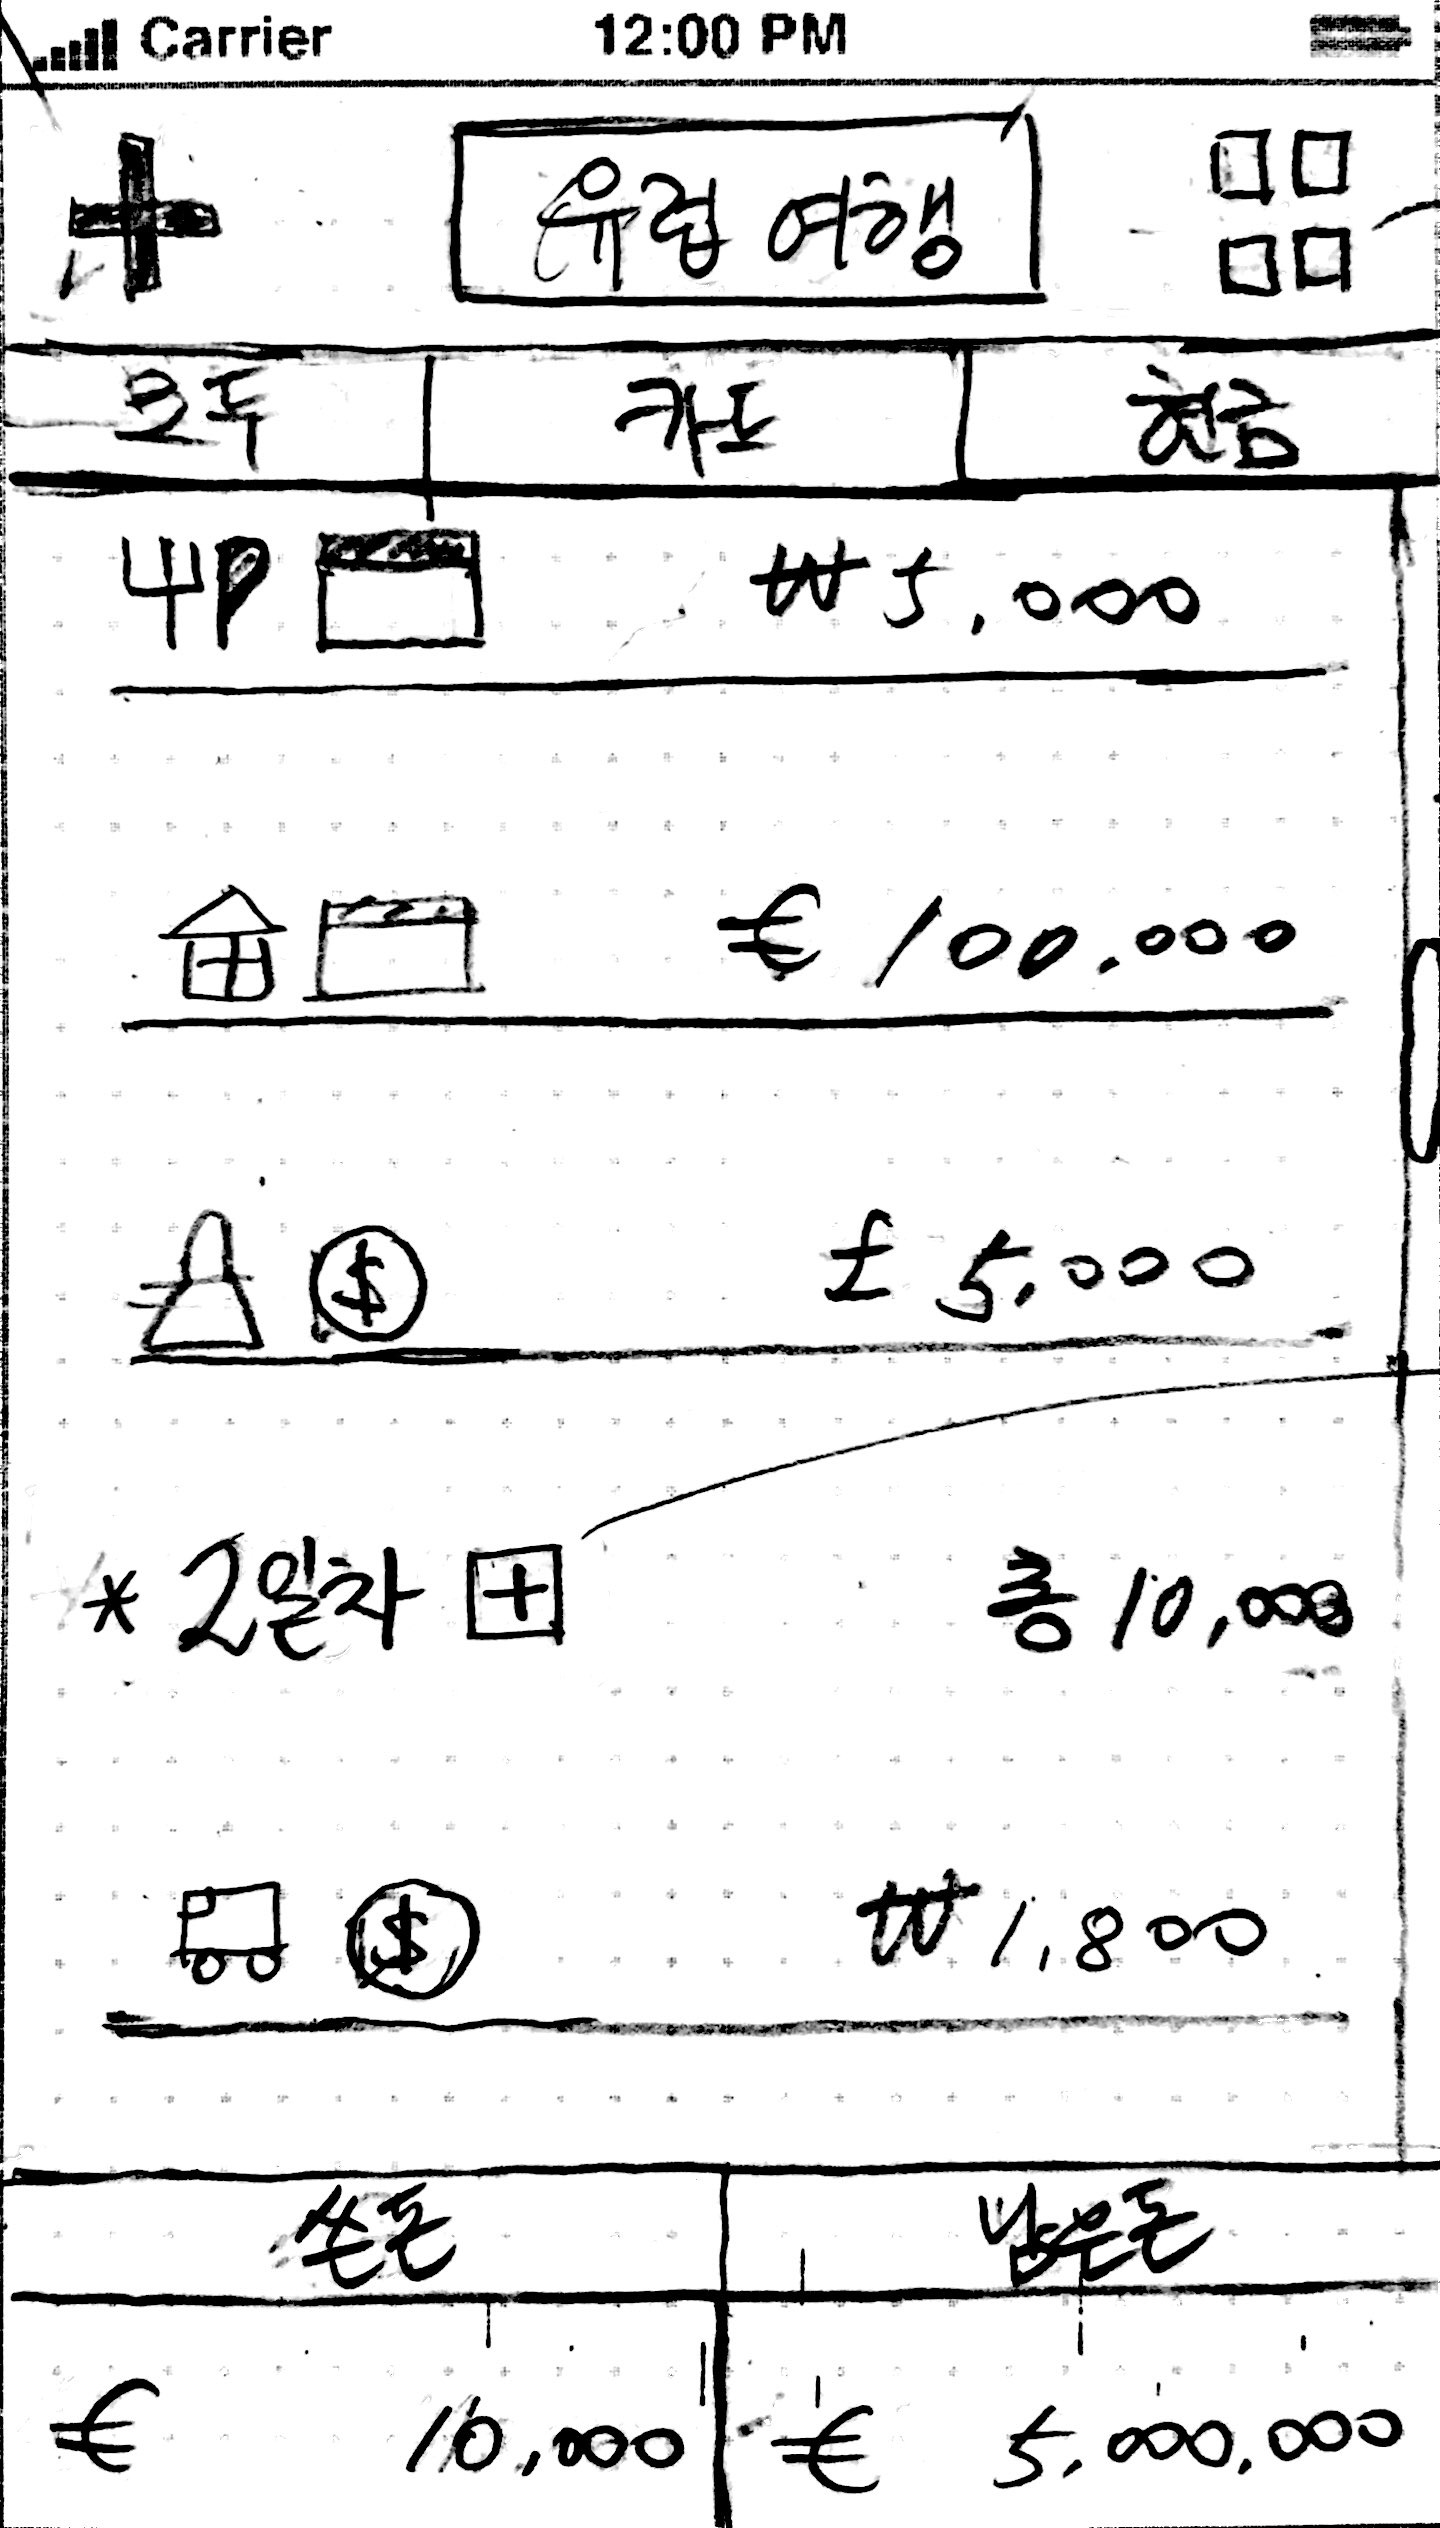 Carrier 12:00 PM
유럽 여행
모두 카드 현금
₩ 5,000
€ 100,000
$ £ 5,000
* 2일차 + 총 10,000
$ ₩ 1,800
쓴돈 남은돈
€ 10,000 € 5,000,000